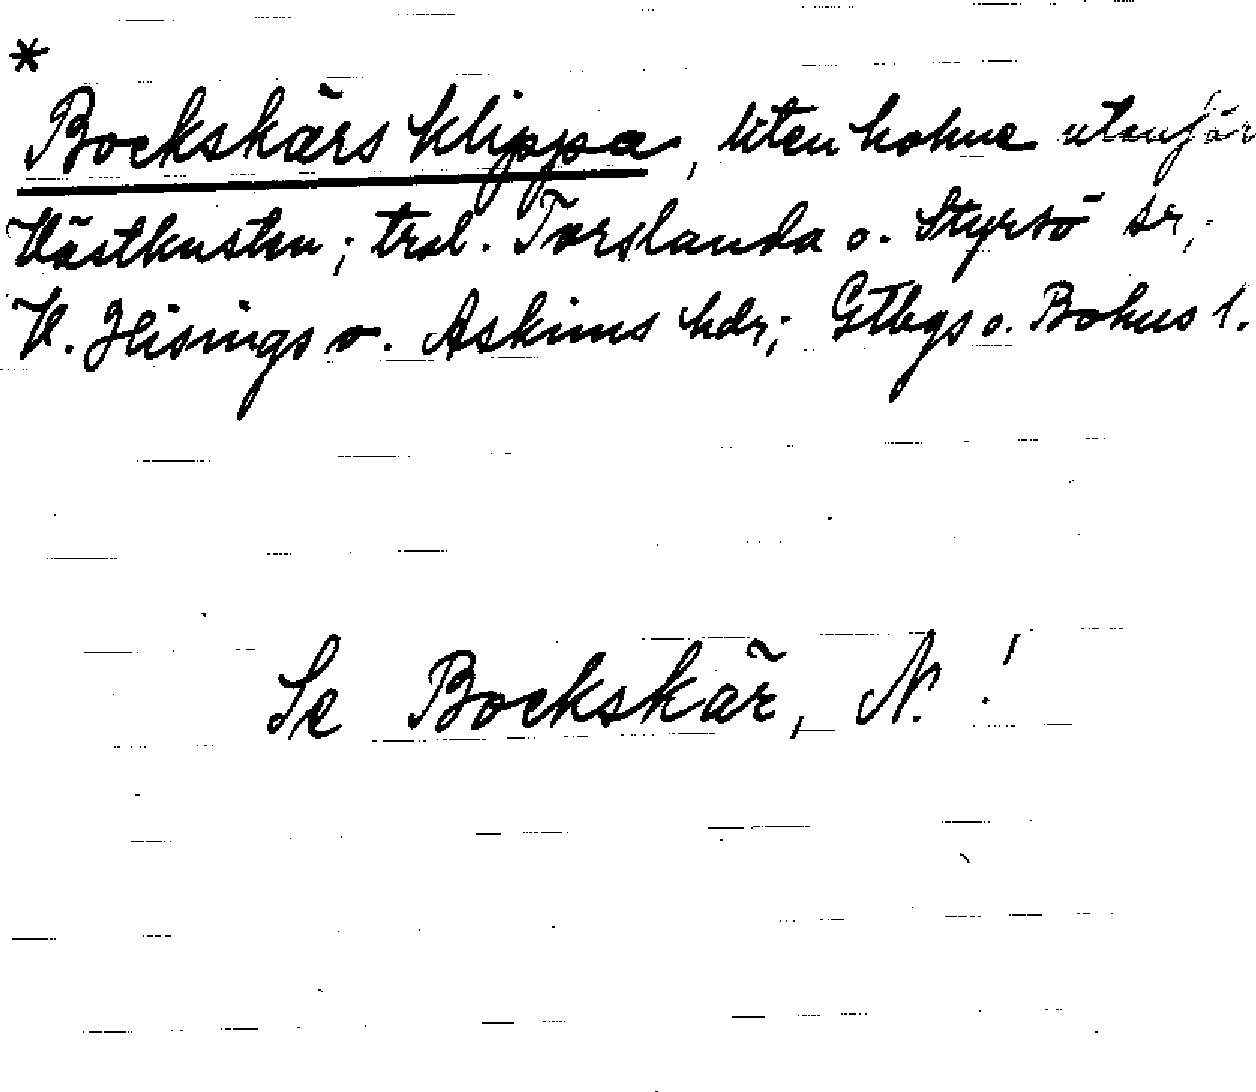 *
Bockskärs klippa, liten holme utanför
Västkusten; trol. Torslanda o. Styrsö sr,
V. Hisings o. Askims hdr; Gtbgs o. Bohus l.
Se Bockskär, N.!